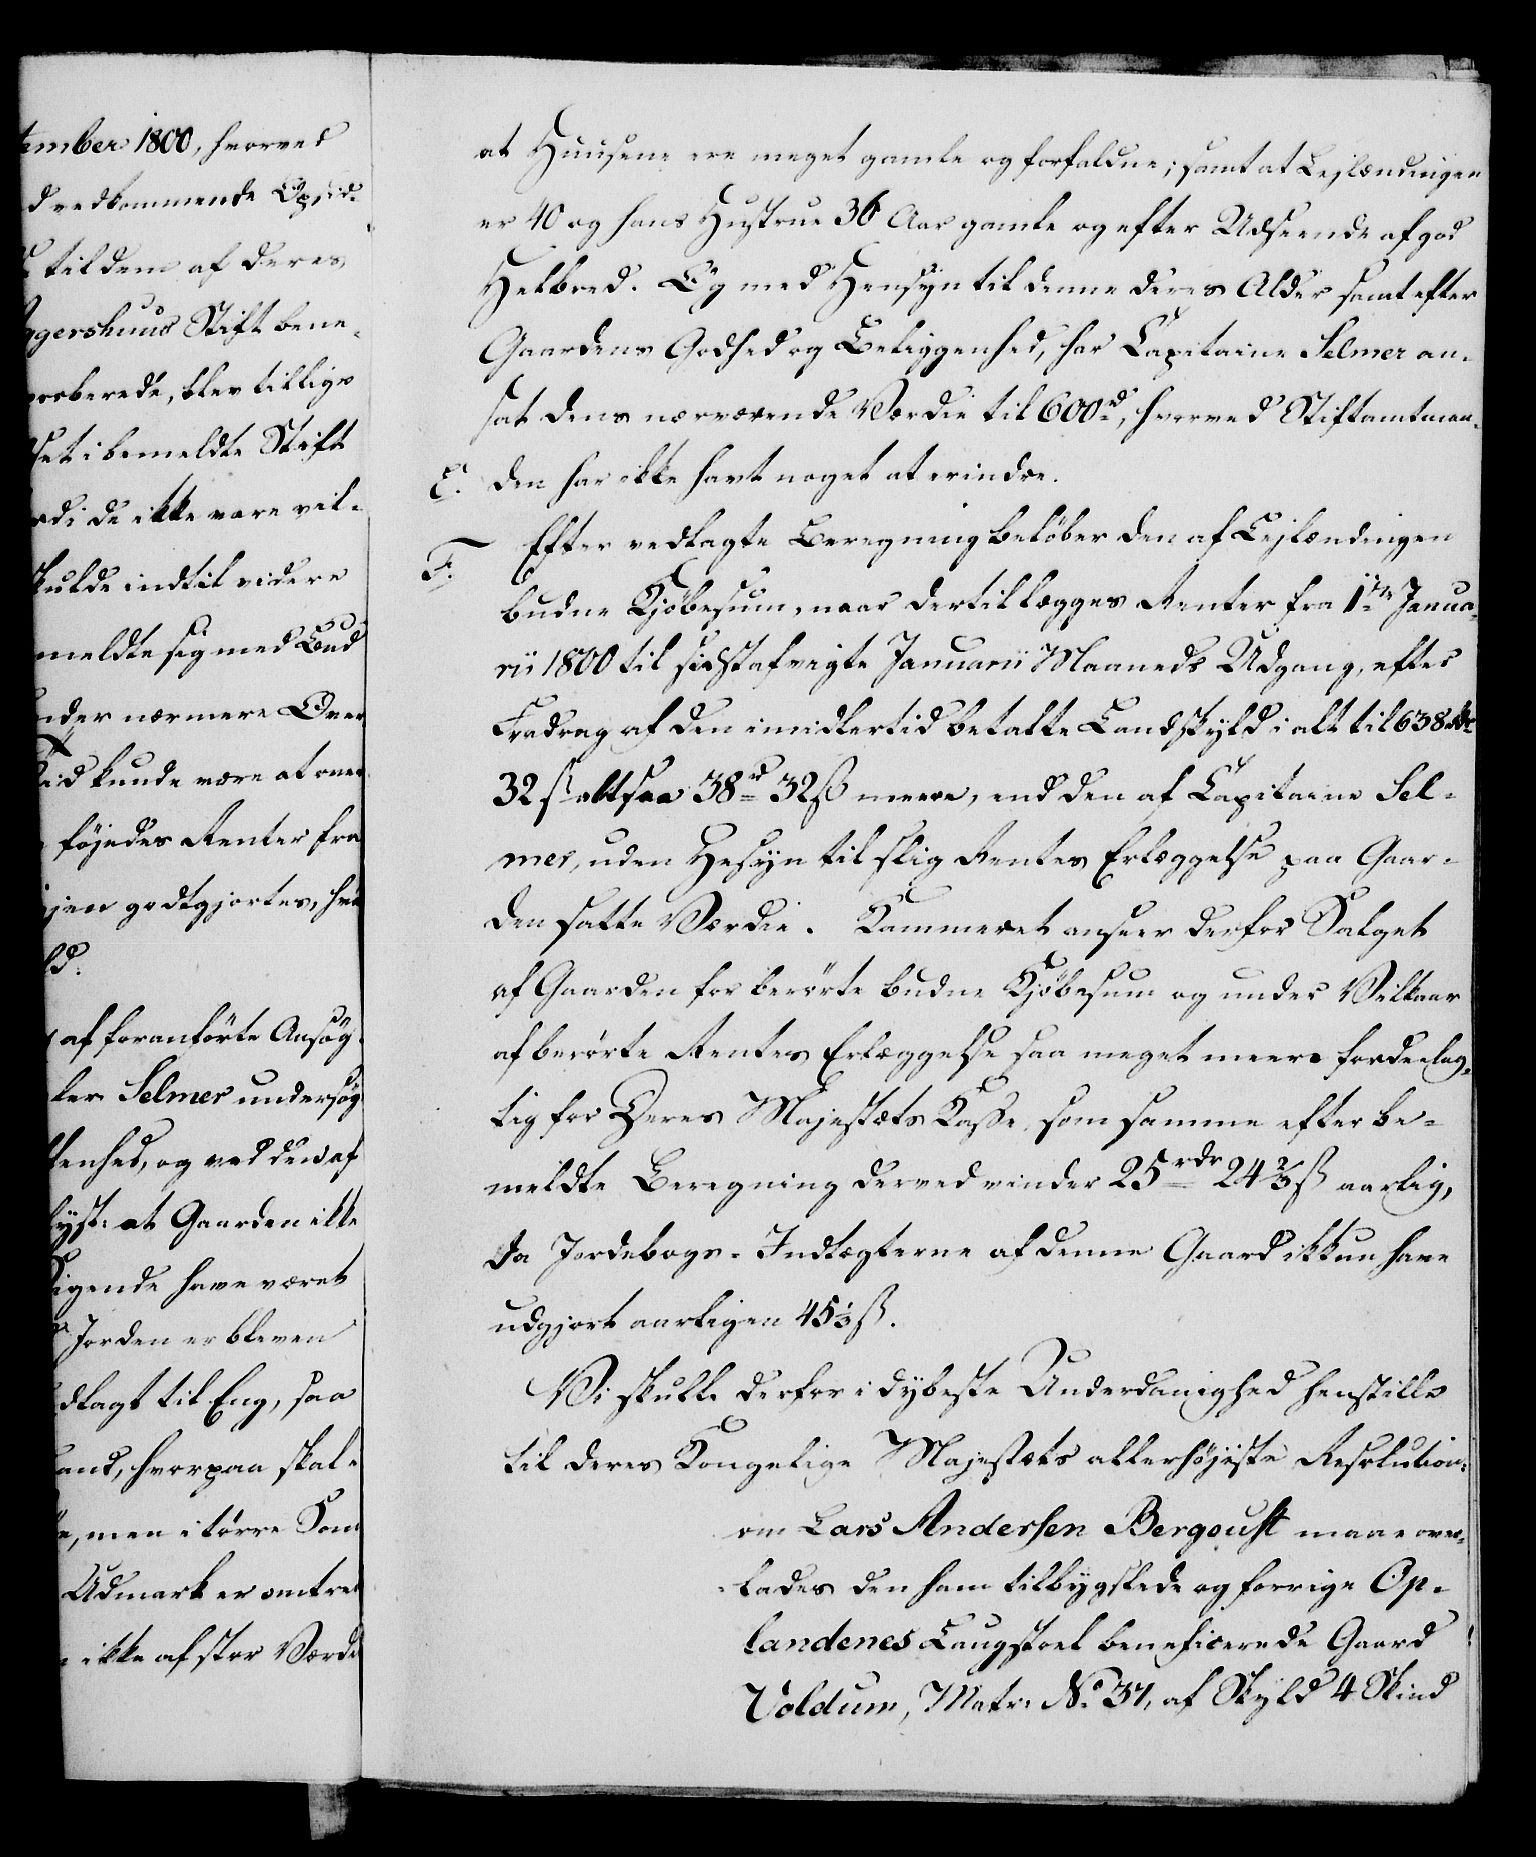 tember 1800, hvorved
d vedkommende Opsid-
til dem af deres
ggershuus Stift bene-
orberede, blev tillige
set i bemeldte Stift
rdi de ikke vare vil-
skulde indtil videre
meldte sig med Bud
nder nærmere Over
Tid kunde være at over
føjedes Renter fra
igjen godtgjortes, hvi
ld.
af foranførte Ansøg-
ler Selmer undersøg
tenhed, og ved den af
lyst: at Gaarden ikke
ligende have været
Jorden er bleven
dlagt til Eng, saa
and, hvorpaa skal-
e, men i tørre Som
Udmark er omtren
ikke af stor Værdi
at Huusene ere meget gamle og forfaldne; samt at Lejlændingen
er 40 og hans Hustrue 36 Aar gamle og efter Udseende af god
Helbred. Og med Hensyn til denne deres Alder samt efter
Gaardens Godhed og Beliggenhed, har Capitaine Selmer an-
sat dens nærværende Værdie til 600rd, hvorved Stiftamtman-
E. den har ikke havt noget at erindre.
F. Efter vedlagte Beregning beløber den af Lejlændingen
budne Kjöbesum, naar dertil lægges Renter fra 1ste Janua-
rii 1800 til sidstafvigte Januarii Maaneds Udgang, efter
Fradrag af den imidlertid betalte Landskyld i alt til 638 rdr
32 ß altsaa 38rd 32ß meere, end den af Capitaine Sel-
mer, uden Hesyn til slig Rentes Erlæggelse paa Gaar-
den satte Værdie. Kammeret anseer derfor Salget
af Gaarden for berørte budne Kjöbesum og under Vilkaar
af berørte Rentes Erlæggelse saa meget meere fordeelag-
tig for Deres Majestæts Kasse, som samme efter be-
meldte Beregning derved vinder 25rdr 24⅔ß aarlig,
da Jordebogs-Indtægterne af denne Gaard ikkun have
udgjort aarligen 45⅓ß.
Vi skulle derfor i dybeste Underdanighed henstille
til Deres Kongelige Majestæts allerhöjeste Resolution:
om Lars Andersen Bergoust maae over-
lades den ham tilbygslede og forrige Op-
landenes Laugstoel beneficerede Gaard
Voldum, Matr: No 37, af Skyld 4 Skind